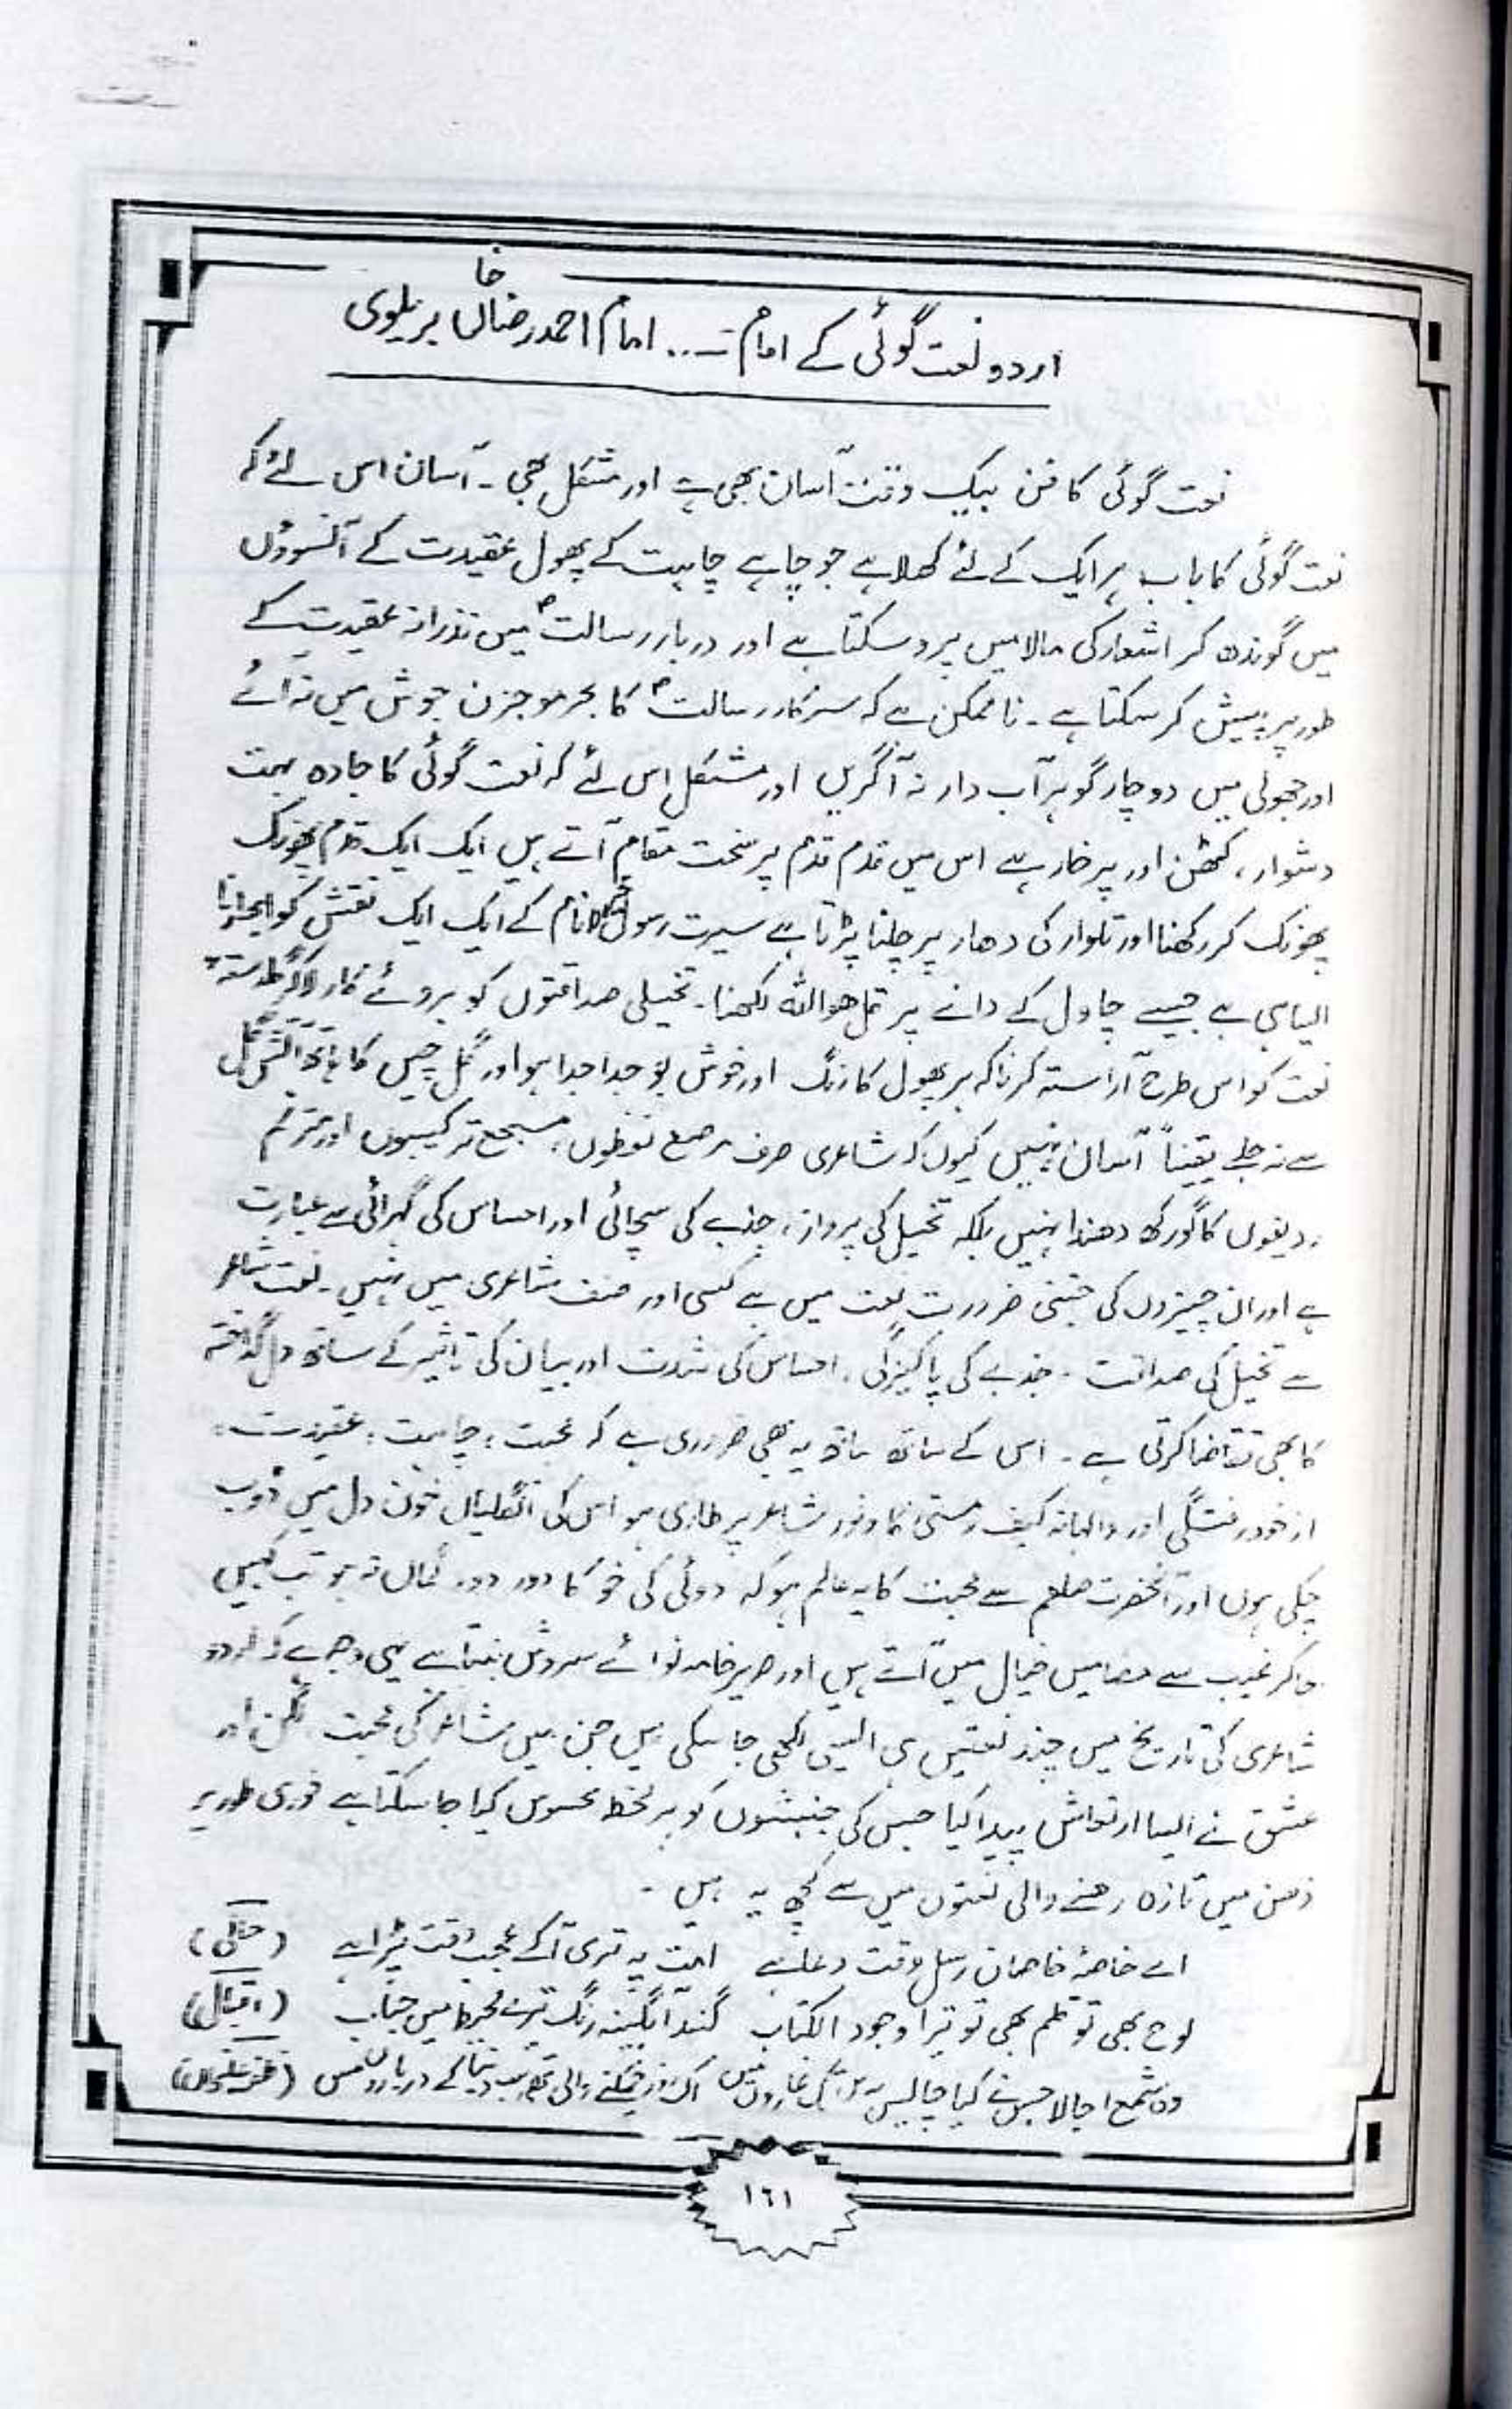 اردو نعت گوئی کے امام ... امام احمد رضا خاں بریلوی
نعت گوئی کا فن بیک وقت آسان بھی ہے اور مشکل بھی ۔ آسان اس لئے کہ
نعت گوئی کا باب ہر ایک کے لئے کھلا ہے جو چاہے چاہت کے پھول عقیدت کے آنسوؤں
میں گوندھ کر اشعار کی مالا میں پرو سکتا ہے اور دربار رسالتؐ میں نذرانہ عقیدت کے
طور پر پیش کر سکتا ہے ۔ نا ممکن ہے کہ سرکار رسالتؐ کا بحر موجزن جوش میں نہ آئے
اور جھولی میں دو چار گوہر آب دار نہ آ گریں اور مشکل اس لئے کہ نعت گوئی کا جادہ بہت
دشوار ، کٹھن اور پر خار ہے اس میں قدم قدم پر سخت مقام آتے ہیں ایک ایک قدم پھونک
پھونک کر رکھنا اور تلوار کی دھار پر چلنا پڑتا ہے سیرت رسول انام کے ایک ایک نقش کو ابھارنا
ایسا ہی ہے جیسے چاول کے دانے پر قل ھو اللہ لکھنا ۔ تخیلی صداقتوں کو بروئے کار لا کر گلدستہء
نعت کو اس طرح آراستہ کرنا کہ ہر پھول کا رنگ اور خوش بو جدا جدا ہو اور گل چیں کا ہاتھ آتش گل
سے نہ جلے یقیناً آسان نہیں کیوں کہ شاعری صرف مرصع لفظوں ، مسجع ترکیبوں اور مترنم
ردیفوں کا گورکھ دھندا نہیں بلکہ تخیل کی پرواز ، جذبے کی سچائی اور احساس کی گہرائی سے عبارت
ہے اور ان چیزوں کی جتنی ضرورت نعت میں ہے کسی اور صنف شاعری میں نہیں ۔ نعت شاعر
سے تخیل کی صداقت ۔ جذبے کی پاکیزگی ، احساس کی شدت اور بیان کی تاثیر کے ساتھ دل گداختہ
کا بھی تقاضا کرتی ہے ۔ اس کے ساتھ ساتھ یہ بھی ضروری ہے کہ محبت ، چاہت ، عقیدت ،
از خود رفتگی اور والہانہ کیف و مستی کا وفور شاعر پر طاری ہو اس کی انگلیاں خون دل میں ڈوب
چکی ہوں اور آنحضرت صلعم سے محبت کا یہ عالم ہو کہ دوئی کی خو کا دور دور گماں نہ ہو تب کہیں
جا کر غیب سے مضامیں خیال میں آتے ہیں اور صریر خامہ نوائے سروش بنتا ہے یہی وجہ ہے کہ اردو
شاعری کی تاریخ میں چند نعتیں ہی ایسی لکھی جا سکی ہیں جن میں شاعر کی محبت لگن اور
عشق نے ایسا ارتعاش پیدا کیا جس کی جنبشوں کو ہر لحظہ محسوس کیا جا سکتا ہے فوری طور پر
ذہن میں تازہ رہنے والی نعتوں میں سے کچھ یہ ہیں ۔
اے خاصۂ خاصان رسل وقت دعا ہے امت پہ تری آ کے عجب وقت پڑا ہے (حالی)
لوح بھی تو قلم بھی تو تیرا وجود الکتاب گنبد آبگینہ رنگ تیرے محیط میں حباب (اقبال)
وہ شمع اجالا جس نے کیا چالیس برس تک غاروں میں اک روز چمکنے والی تھی سب دنیا کے درباروں میں (ظفر علی خاں)
١٦١